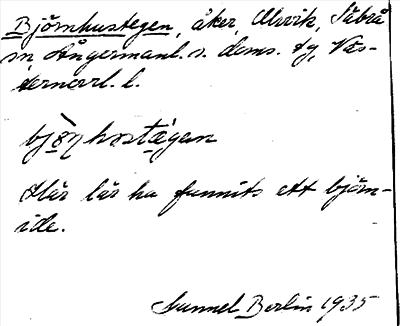 Björnhustegen, åker, Ulvvik, Säbrå
sn, Ångermanl. s. doms. tg, Väs-
ternorrl. l.
bjö̱ṉhostægen
Här lär ha funnits ett björn-
ide.
Gunnel Berlin 1935